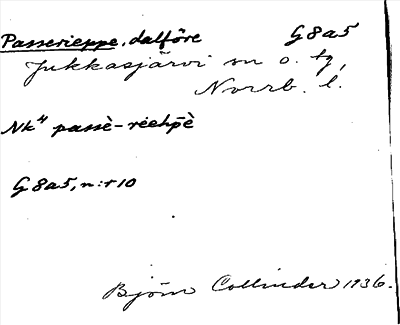 Passerieppe, dalföre G8a5
Jukkasjärvi sn o. tg,
Norrb. l.
Nk⁴ passè-riehpè
G8a5, n:r 10
Björn Collinder 1936.